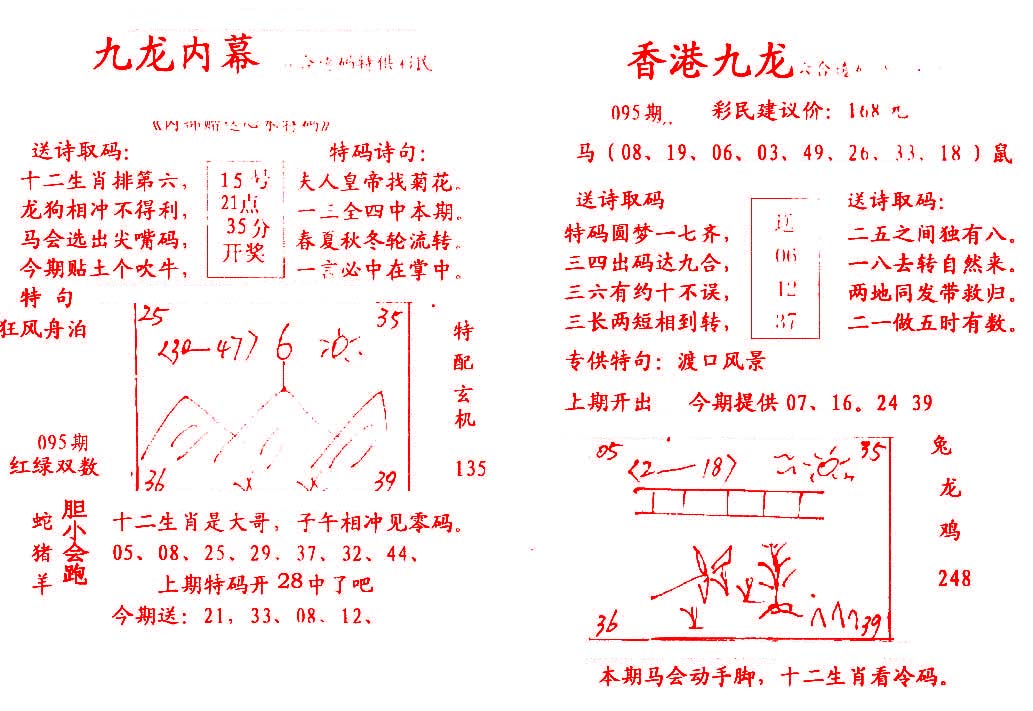 九龙内幕
送诗取码：
十二生肖排第六，
龙狗相冲不得利，
马会选出尖嘴码，
今期贴土个吹牛，
15号
21点
35分
开奖
特码诗句：
夫人皇帝找菊花。
一三全四中本期。
春夏秋冬轮流转。
一言必中在掌中。
特句
狂风舟泊
25
35
<30—47> 6
36
39
特配玄机
135
095期
红绿双数
蛇猪羊
胆小会跑
十二生肖是大哥，子午相冲见零码。
05、08、25、29、37、32、44、
上期特码开28中了吧
今期送：21，33、08、12、
香港九龙
095期 彩民建议价：168元
马（08、19、06、03、49、26、33、18）鼠
送诗取码
特码圆梦一七齐，
三四出码达九合，
三六有约十不误，
三长两短相到转，
06
12
37
送诗取码：
二五之间独有八。
一八去转自然来。
两地同发带救归。
二一做五时有数。
专供特句：渡口风景
上期开出 今期提供07、16。24 39
05
35
<2—18>
36
39
兔
龙
鸡
248
本期马会动手脚，十二生肖看冷码。